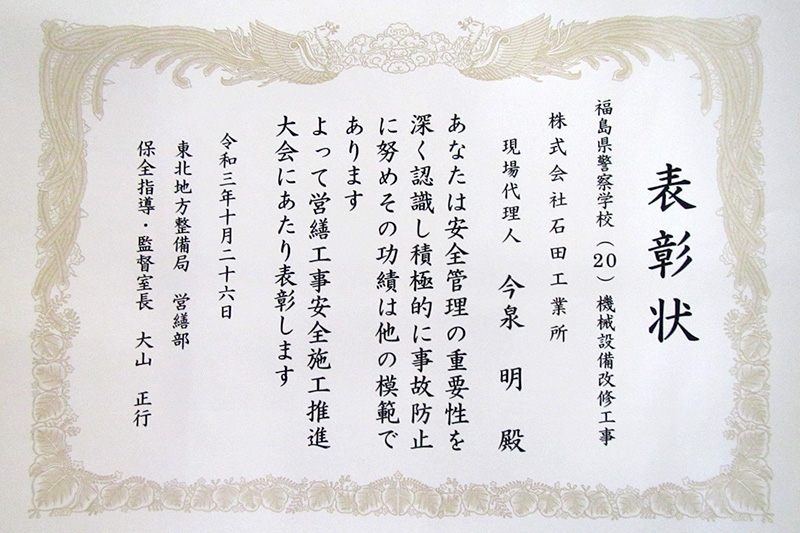 表彰状
福島県警察学校(20)機械設備改修工事
株式会社石田工業所
現場代理人 今泉 明 殿
あなたは安全管理の重要性を
深く認識し積極的に事故防止
に努めその功績は他の模範で
あります
よって営繕工事安全施工推進
大会にあたり表彰します
令和三年十月二十六日
東北地方整備局 営繕部
保全指導・監督室長 大山 正行